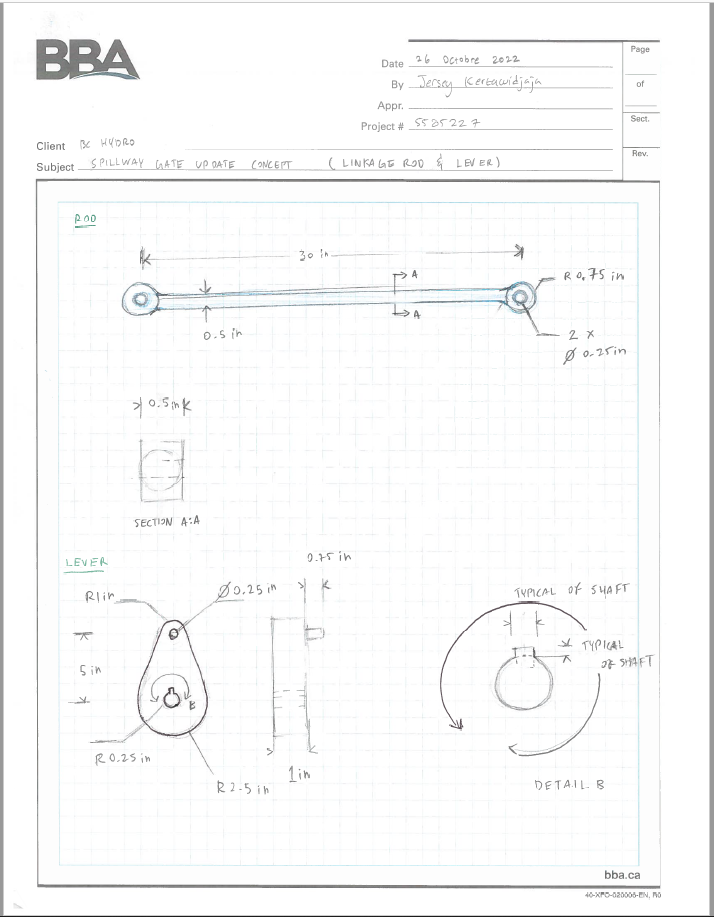 BBA
Page
Date 26 Octobre 2022
By Jersey Kertawidjaja
of
Appr.
Project # 5535227
Sect.
Client BC HYDRO
Rev.
Subject SPILLWAY GATE UPDATE CONCEPT (LINKAGE ROD & LEVER)
ROD
30 in
A
R 0.75 in
A
0.5 in
2 x
Ø 0.25in
0.5in
SECTION A:A
LEVER
0.75 in
R1in
Ø0.25in
TYPICAL OF SHAFT
TYPICAL
OF SHAFT
5 in
R 0.25 in
1in
R 2.5 in
DETAIL B
bba.ca
40-XFO-020006-EN, R0